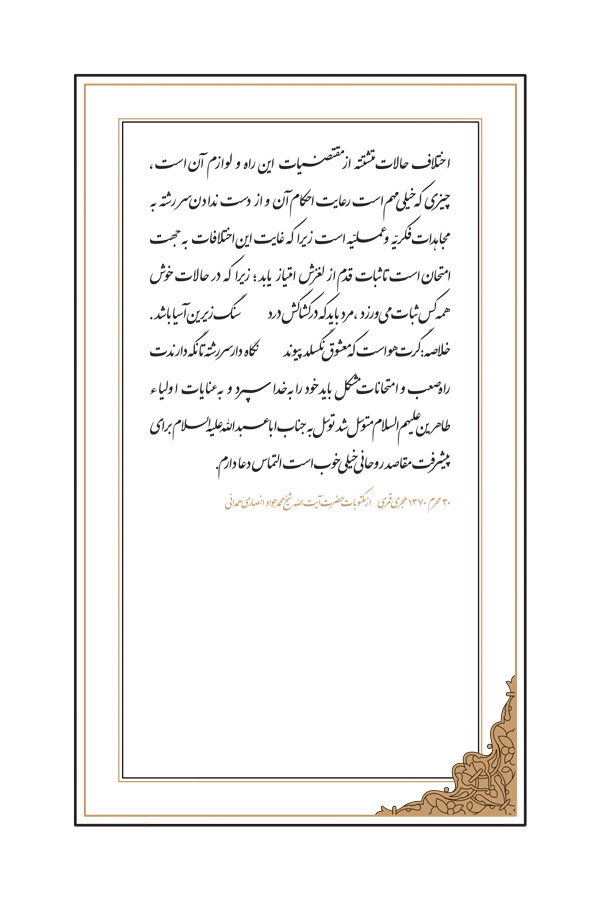 اختلاف حالات متشتته از مقتضیات این راه و لوازم آن است،
چیزی که خیلی مهم است رعایت احکام آن و از دست ندادن سررشته به
مجاهدات فکریّه و عملیّه است زیرا که غایت این اختلافات به جهت
امتحان است تا ثبات قدم از لغزش امتیاز یابد؛ زیرا که در حالات خوش
همه کس ثبات می‌ورزد، مرد باید که در کشاکش درد سنگ زیرین آسیا باشد.
خلاصه: گرت هواست که معشوق نگسلد پیوند نگاه دار سررشته تا نگه دارندت
راه صعب و امتحانات مشکل باید خود را به خدا سپرد و به عنایات اولیاء
طاهرین علیهم السلام متوسّل شد توسّل به جناب اباعبدالله علیه السلام برای
پیشرفت مقاصد روحانی خیلی خوب است التماس دعا دارم.
۳۰ محرم ۱۳۷۰ هجری قمری از مکتوبات حضرت آیت الله شیخ محمد جواد انصاری همدانی